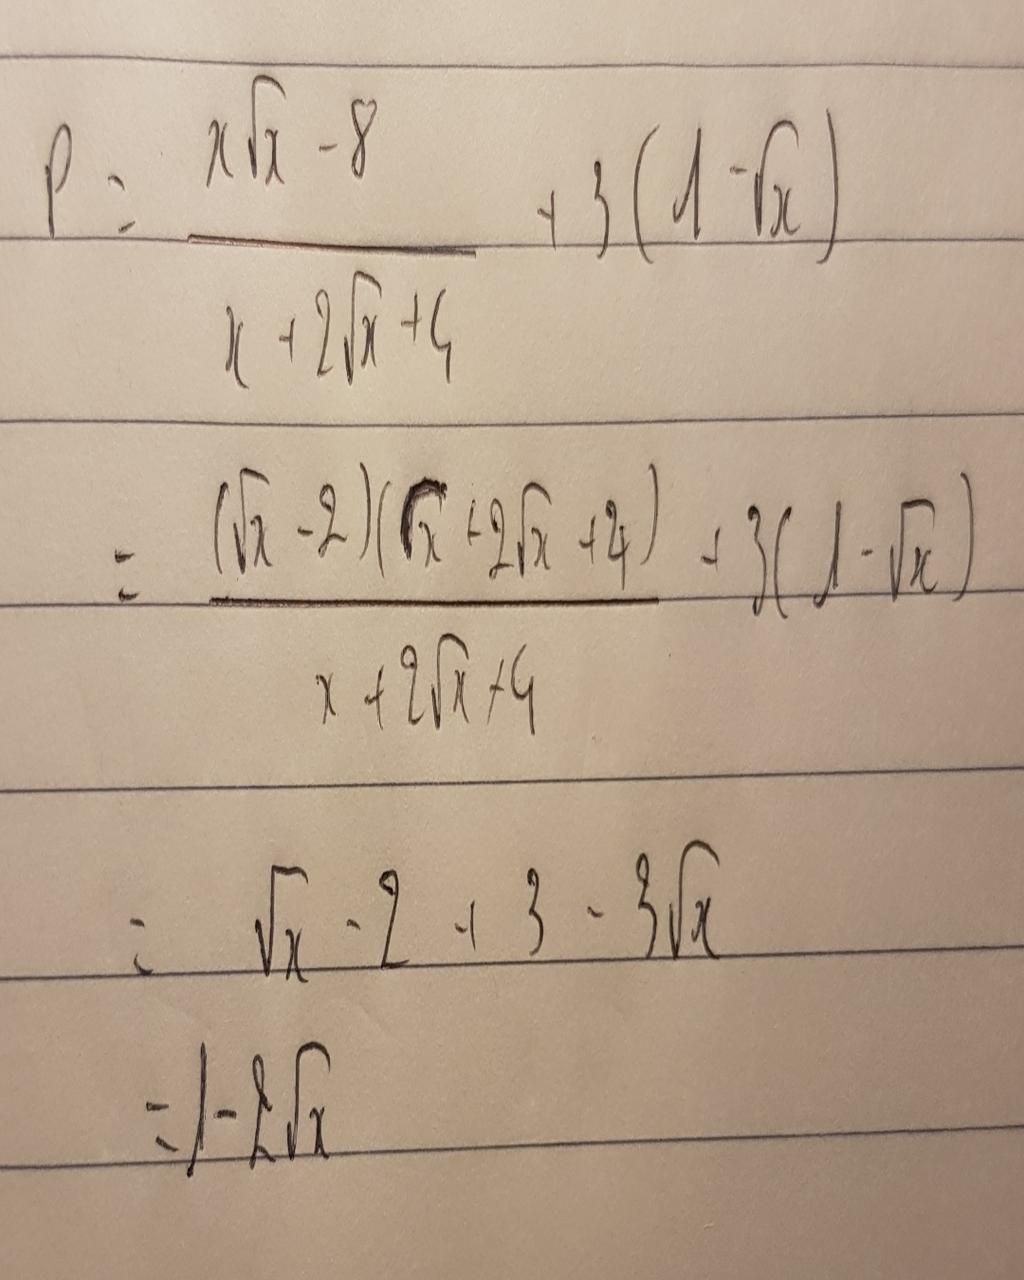 P = \frac{x\sqrt{x} - 8}{x + 2\sqrt{x} + 4} + 3(1 - \sqrt{x})
= \frac{(\sqrt{x} - 2)(\sqrt{x} + 2\sqrt{x} + 4)}{x + 2\sqrt{x} + 4} + 3(1 - \sqrt{x})
= \sqrt{x} - 2 + 3 - 3\sqrt{x}
= 1 - 2\sqrt{x}